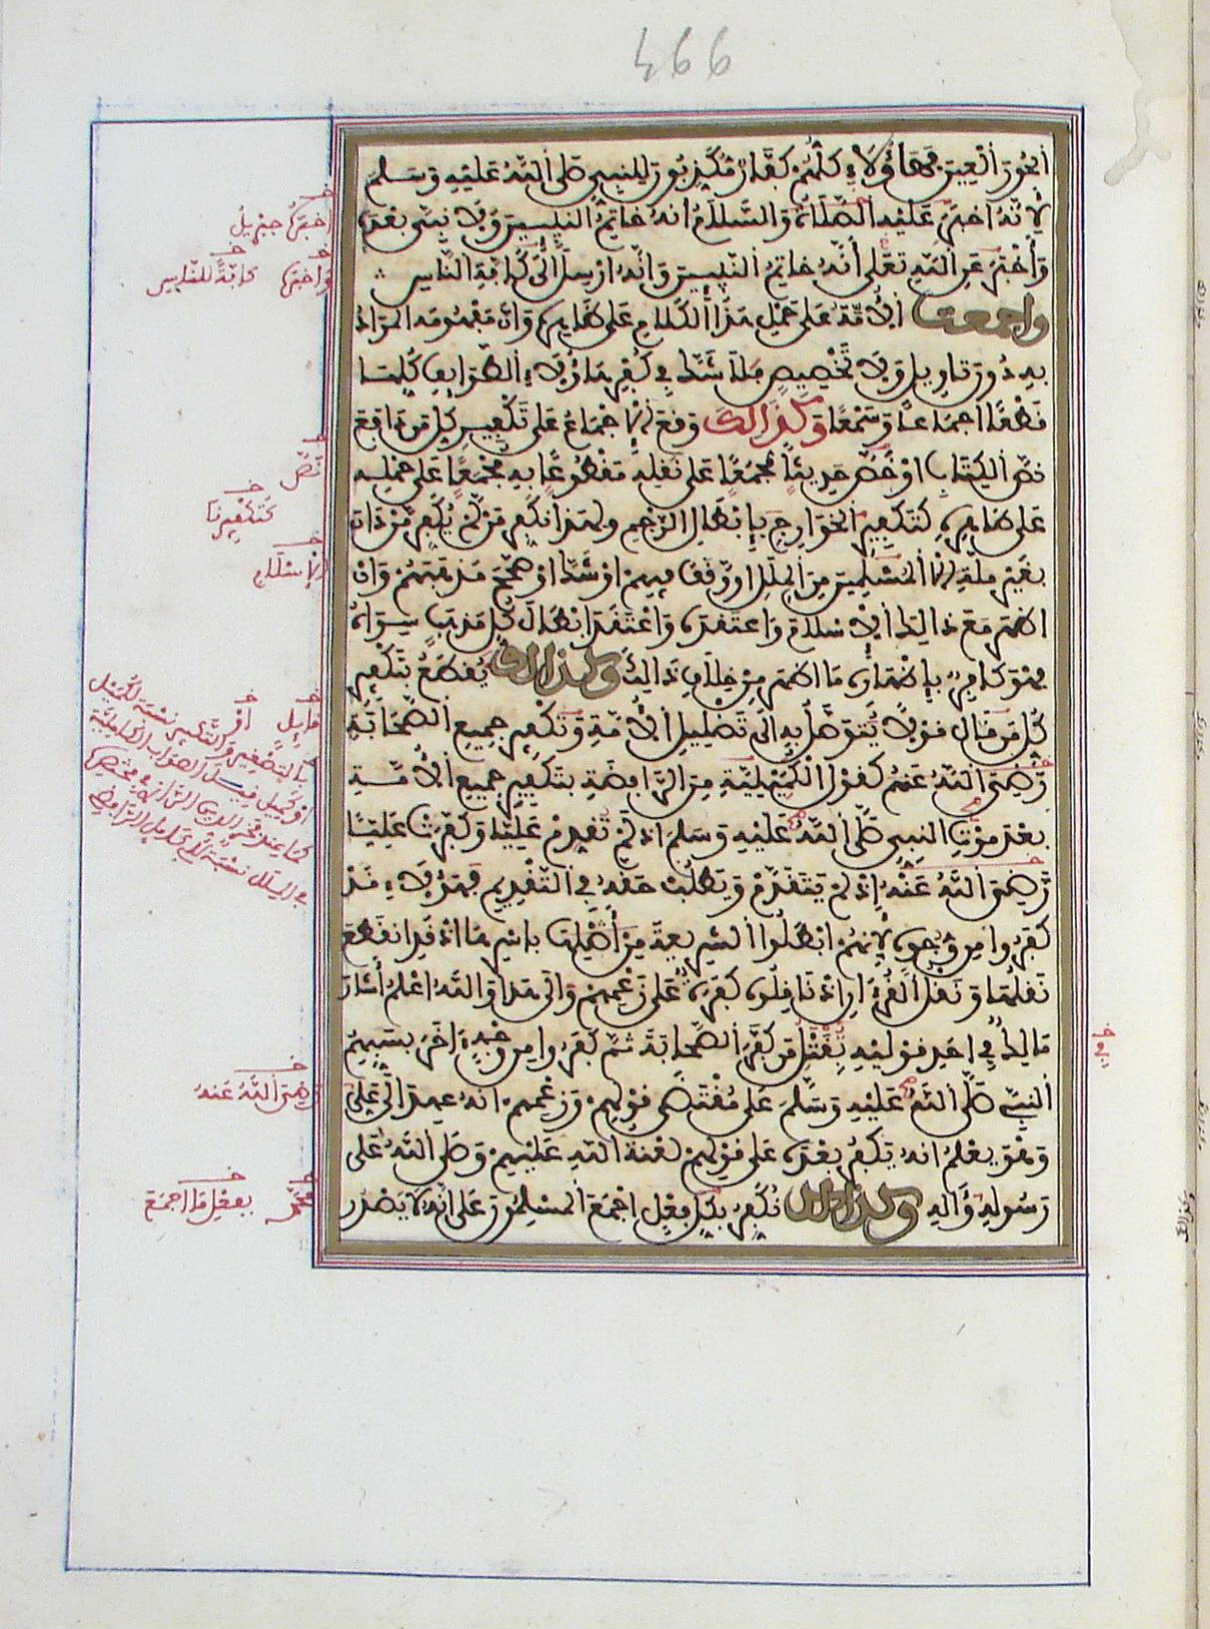 الحور العين فهاؤلاء كلهم كفار مكذبون للنبي صلى الله عليه وسلم
لانه اخبر عليه الصلاة والسلام انه خاتم النبيين ولا نبي بعده
وأخبر عن الله تعلى أنه خاتم النبيين وانه ارسل الى كافة الناس
واجمعت الأمة على حمل هذا الكلام على ظاهره وان مفهومه المراد
به دون تاويل ولا تخصيص فلا شك في كفر هاؤلاء الطوايف كلها
قطعا اجماعا وسمعا وكذالك وقع الاجماع على تكفير كل من دافع
نص الكتاب او خص حديثا مجمعا على نقله مقطوعا به مجمعا على حمله
على ظاهره كتكفير الخوارج بإبطال الرجم ولهذا نكفر من لم يكفر من دان
بغير ملة المسلمين من الملل او وقف فيهم او شك او صحح مذهبهم وان
اظهر مع ذالك الاسلام واعتقده واعتقد ابطال كل مذهب سواه
فهو كافر بإظهاره ما اظهر من خلاف ذالك وكذالك يقطع بتكفير
كل من قال قولا يتوصل به الى تضليل الأمة وتكفير جميع الصحابة
رضي الله عنهم كقول الكميلية من الرافضة بتكفير جميع الأمة
بعد موت النبي صلى الله عليه وسلم اذ لم تقدم عليا وكفرت عليا
رضي الله عنه إذ لم يتقدم ويطلب حقه في التقديم فهؤلاء قد
كفروا من وجوه لأنهم ابطلوا الشريعة من أصلها باسرها اذ قد انقطع
نقلها ونقل القرءان اذ ناقلوه كفرة على زعمهم والى هذا والله اعلم أشار
مالك في احد قوليه بقتل من كفر الصحابة ثم كفروا من وجه ءاخر بسبهم
النبي صلى الله عليه وسلم على مقتضى قولهم وزعمهم انه عهد الى علي
وهو يعلم انه يكفر بعده على قولهم لعنة الله عليهم وصلى الله على
رسوله وءاله وكذالك نكفر بكل فعل اجمع المسلمون على انه لا يصدر
اخبر جبريل
واخبر كافة للناس
نص
كتكفيرنا
الاسلام
قايل
رضي الله عنه
بفعل ما اجمع